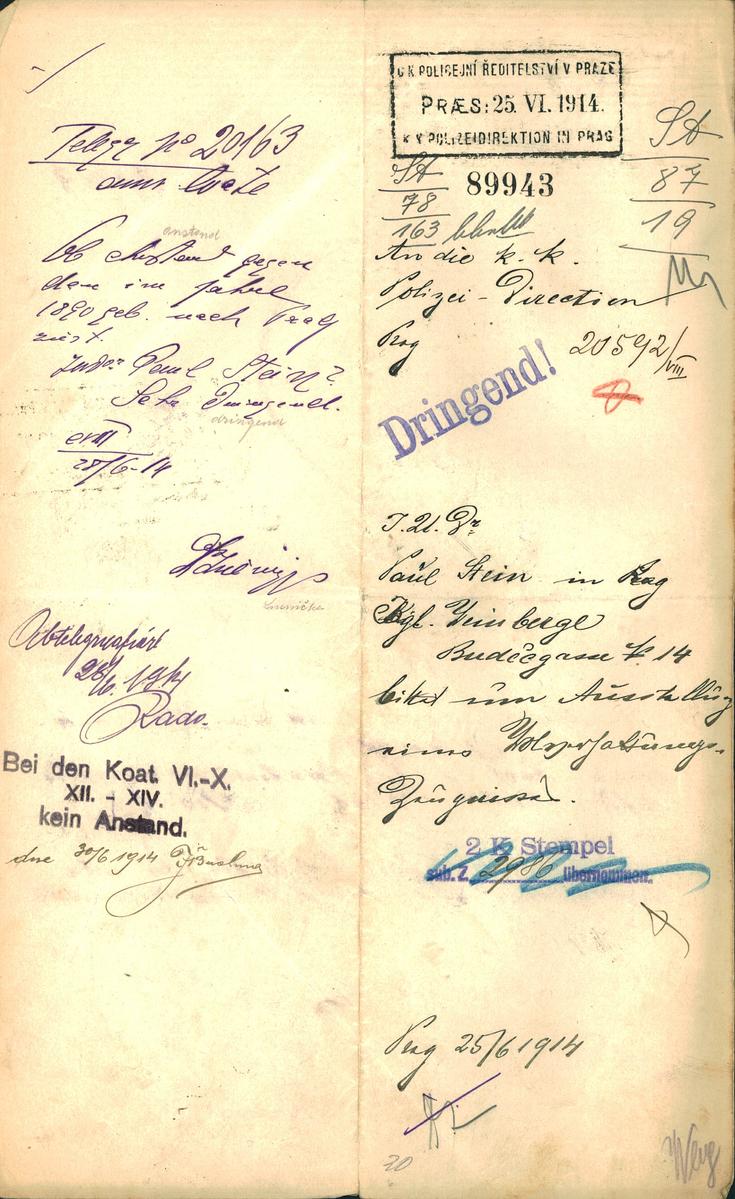 Telegr № 20163
Ob Anstand gegen
anstend
den im Jahre
1890 geb. nach Prag
zust.
JUDr Paul Stein?
Sehr Dringend.
dringend
28/6-14
28/6. 1914
Bei den Koat. VI.-X.
XII. - XIV.
kein Anstand.
dne 30/6 1914
C K POLICEJNÍ ŘEDITELSTVÍ V PRAZE
PRÆS: 25. VI. 1914.
K K POLIZEIDIREKTION IN PRAG
St
78
163
89943
St
87
19
An die k. k.
Polizei-Direction
Prag
20592/VIII
Dringend!
J.U.Dr
Paul Stein in Prag
Kgl. Weinberge
Budečgasse № 14
bittet um Ausstellung
eines Wohlverhaltungs-
Zeugnisses.
2 K Stempel
sub. Z. 2986 übernommen.
Prag 25/6 1914
20